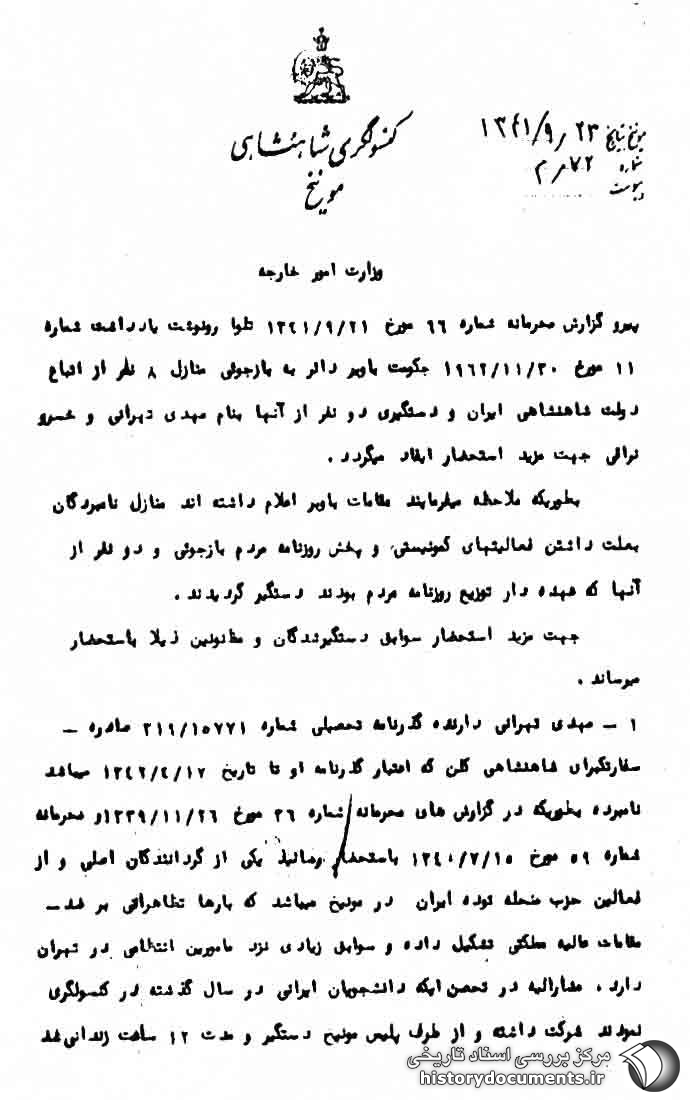 کنسولگری شاهنشاهی
مونیخ
مونیخ بتاریخ ۱۳۴۱/۹/۲۳
شماره ۷۲ م
پیوست
وزارت امور خارجه
پیرو گزارش محرمانه شماره ۶۶ مورخ ۱۳۴۱/۹/۲۱ تلوا رونوشت یادداشت شماره
۱۱ مورخ ۱۹۶۲/۱۱/۳۰ حکومت باویر دائر به بازجوئی منازل ۸ نفر از اتباع
دولت شاهنشاهی ایران و دستگیری دو نفر از آنها بنام مهدی تهرانی و خسرو
نراقی جهت مزید استحضار ایفاد میگردد .
بطوریکه ملاحظه میفرمایند مقامات باویر اعلام داشته اند منازل نامبردگان
بعلت داشتن فعالیتهای کمونیستی و پخش روزنامه مردم بازجوئی و دو نفر از
آنها که عهده دار توزیع روزنامه مردم بودند دستگیر گردیدند .
جهت مزید استحضار سوابق دستگیرشدگان و مظنونین ذیلا باستحضار
میرساند .
۱ ـ مهدی تهرانی دارنده گذرنامه تحصیلی شماره ۲۱۹/۱۵۷۷۱ صادره ـ
سفارتکبرای شاهنشاهی کلن که اعتبار گذرنامه او تا تاریخ ۱۳۴۲/۴/۱۷ میباشد
نامبرده بطوریکه در گزارش های محرمانه شماره ۳۶ مورخ ۱۳۳۹/۱۱/۲۶ و محرمانه
شماره ۵۹ مورخ ۱۳۴۰/۷/۱۵ باستحضار رسانید یکی از گردانندگان اصلی و از
فعالین حزب منحله توده ایران در مونیخ میباشد که بارها تظاهراتی بر ضد ـ
مقامات عالیه مملکتی تشکیل داده و سوابق زیادی نزد مامورین انتظامی در تهران
دارد . مشارالیه در تحصن اینکه دانشجویان ایرانی در سال گذشته در کنسولگری
نمودند شرکت داشته و از طرف پلیس مونیخ دستگیر و مدت ۱۲ ساعت زندانی شد
مرکز بررسی اسناد تاریخی
historydocuments.ir